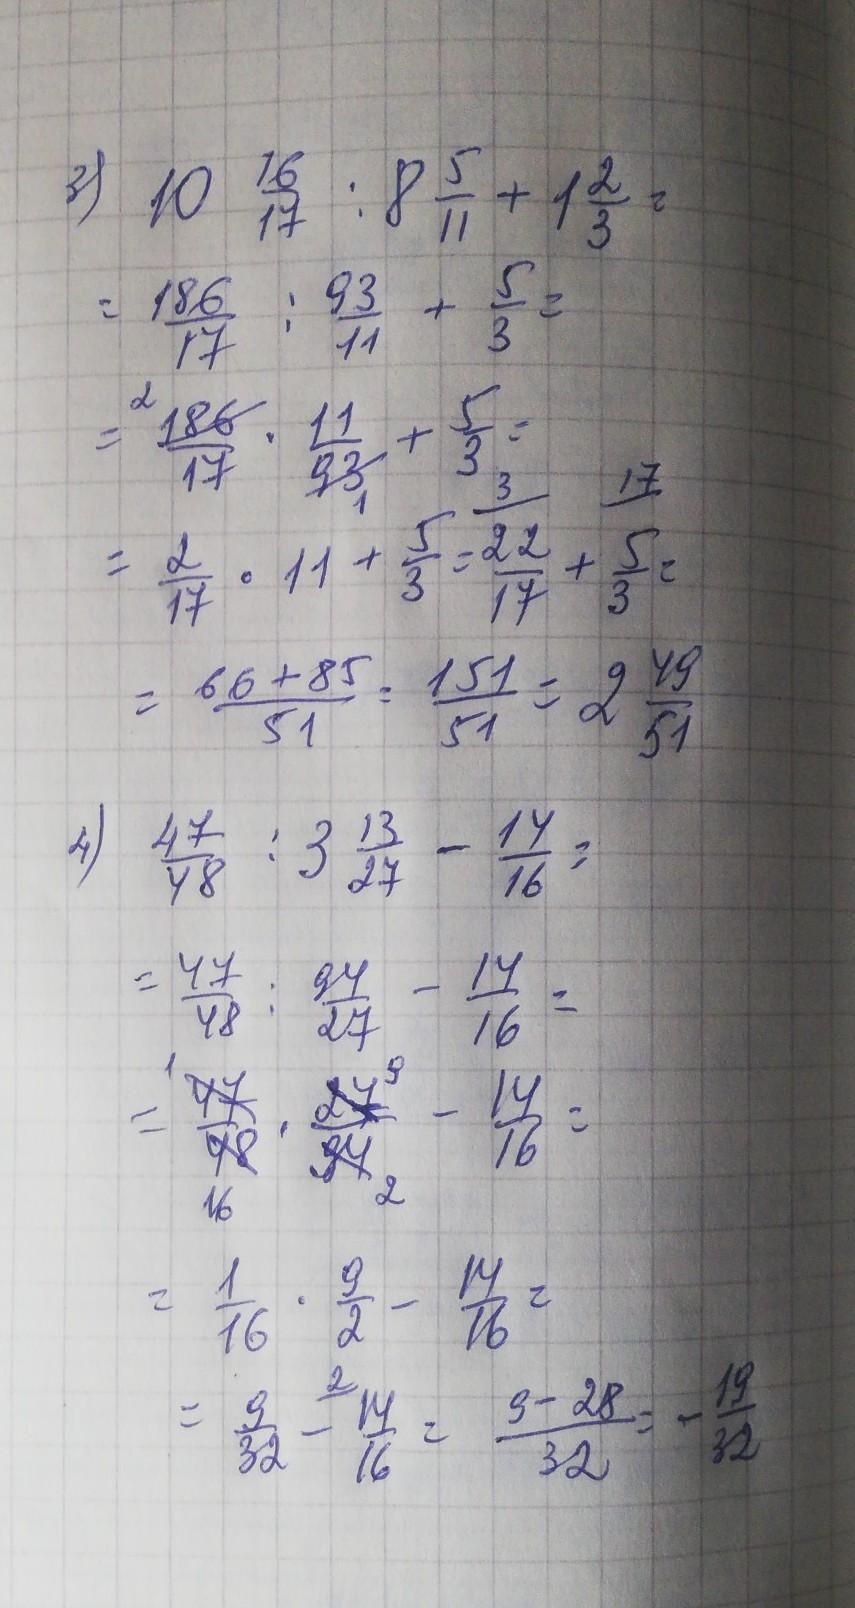 3) 10 16/17 : 8 5/11 + 1 2/3 =
= 186/17 : 93/11 + 5/3 =
= 2 186/17 · 11/93 1 + 5/3 =
= 2/17 · 11 + 5/3 = 3 22/17 + 17 5/3 =
= 66+85/51 = 151/51 = 2 49/51
4) 47/48 : 3 13/27 - 14/16 =
= 47/48 : 94/27 - 14/16 =
= 1 47/48 16 · 27 9/94 2 - 14/16 =
= 1/16 · 9/2 - 14/16 =
= 9/32 - 2 14/16 = 9-28/32 = - 19/32